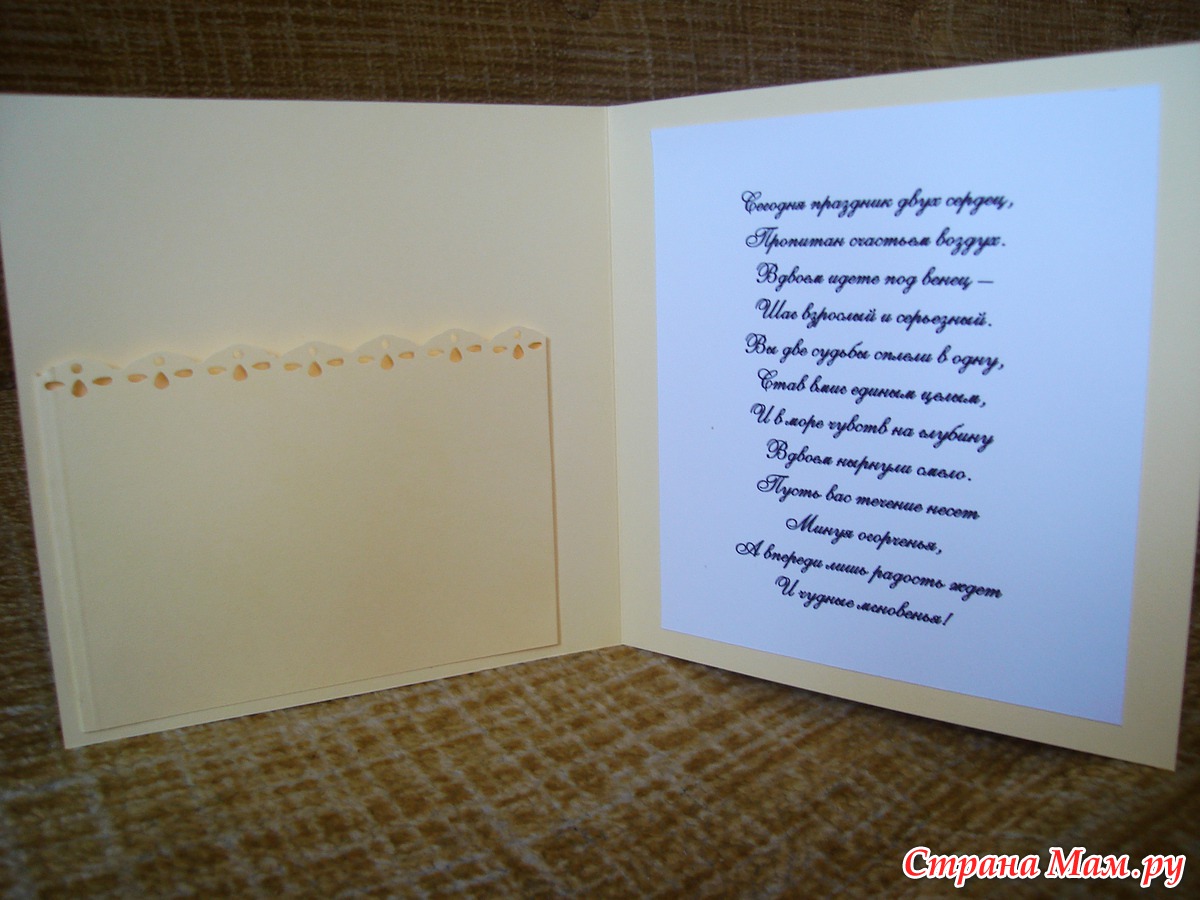 Сегодня праздник двух сердец,
Пропитан счастьем воздух.
Вдвоем идете под венец —
Шаг взрослый и серьезный.
Вы две судьбы сплели в одну,
Став вмиг единым целым,
И в море чувств на глубину
Вдвоем нырнули смело.
Пусть вас течение несет
Минуя огорченья,
А впереди лишь радость ждет
И чудные мгновенья!
Страна Мам.ру